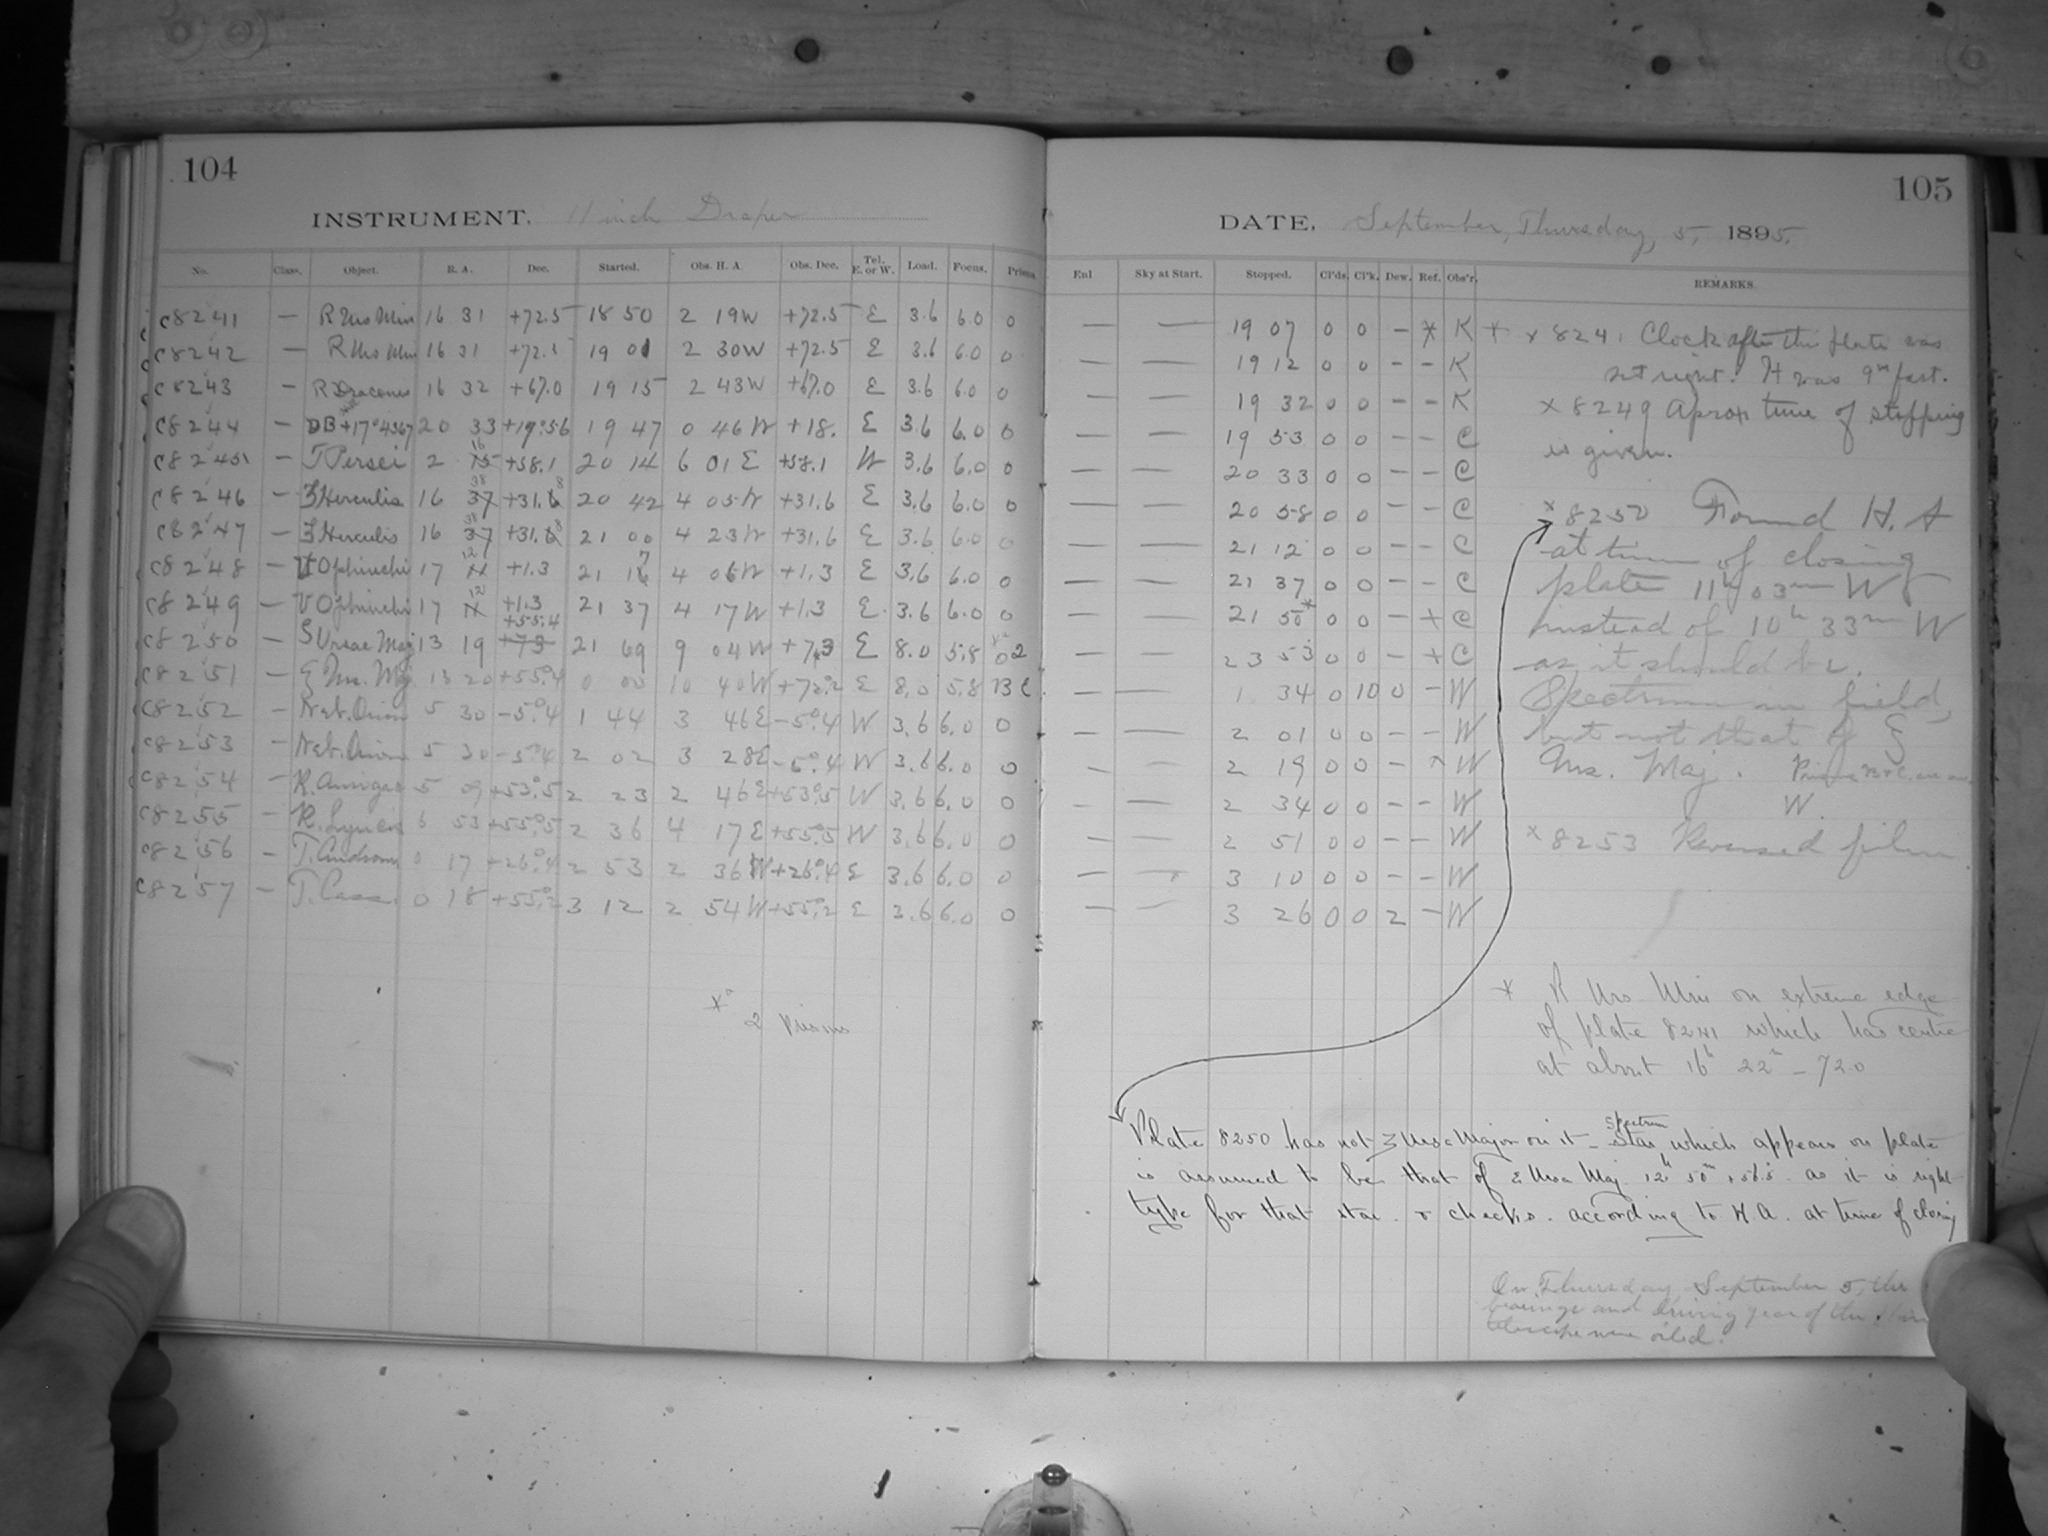 104
INSTRUMENT. 11 inch Draper
No. Class. Object. R. A. Dec. Started. Obs. H. A. Obs. Dec. Tel. E. or W. Load. Focus. Prism.
c8241 — R Urs Min 16 31 +72.5 18 50 2 19W +72.5 E 3.6 6.0 0
c8242 — R Urs Min 16 31 +72.5 19 01 2 30W +72.5 E 3.6 6.0 0
c8243 — R Draconis 16 32 +67.0 19 15 2 43W +67.0 E 3.6 6.0 0
c8244 — DB+17°4367 20 33 +19°.56 19 47 0 46W +18. E 3.6 6.0 0
c8245 — T Persei 2 15 16 +58.1 20 14 6 01 E +58.1 W 3.6 6.0 0
c8246 — ζ Herculis 16 37 38 +31.6 8 20 42 4 05W +31.6 E 3.6 6.0 0
c8247 — ζ Herculis 16 37 38 +31.6 8 21 00 4 23W +31.6 E 3.6 6.0 0
c8248 — U Ophiuchi 17 11 12 +1.3 21 16 7 4 06W +1.3 E 3.6 6.0 0
c8249 — U Ophiuchi 17 11 12 +1.3 21 37 4 17W +1.3 E 3.6 6.0 0
c8250 — ζ Ursae Maj 13 19 +73 +55.4 21 69 9 04W +73 E 8.0 5.8 0 2
c8251 — ξ Urs. Maj. 13 20 +55°.4 0 00 10 40W +72°.2 E 8.0 5.8 B C
c8252 — Neb. Orion 5 30 -5°.4 1 44 3 46E -5°.4 W 3.6 6.0 0
c8253 — Neb. Orion 5 30 -5°.4 2 02 3 28E -5°.4 W 3.6 6.0 0
c8254 — R. Aurigae 5 09 +53°.5 2 23 2 46E +53°.5 W 3.6 6.0 0
c8255 — R. Lyncis 6 53 +55°.5 2 36 4 17E +55°.5 W 3.6 6.0 0
c8256 — T. Androm 0 17 +26°.4 2 53 2 36W +26°.4 E 3.6 6.0 0
c8257 — T. Cass. 0 18 +55°.2 3 12 2 54W +55°.2 E 3.6 6.0 0
2 Prisms
105
DATE. September, Thursday, 5, 1895.
Enl Sky at Start. Stopped. Cl'ds. Cl'k. Dew. Ref. Obs'r. REMARKS.
— — 19 07 0 0 — * K
— — 19 12 0 0 — — K
— — 19 32 0 0 — — K
— — 19 53 0 0 — — C
— — 20 33 0 0 — — C
— — 20 58 0 0 — — C
— — 21 12 0 0 — — C
— — 21 37 0 0 — — C
— — 21 50* 0 0 — + C
— — 23 53 0 0 — + C
— — 1 34 0 10 0 — W
— — 2 01 0 0 — — W
— — 2 19 0 0 — × W
— — 2 34 0 0 — — W
— — 2 51 0 0 — — W
— — 3 10 0 0 — — W
— — 3 26 0 0 2 — W
× 8241 Clock after this plate was
set right. It was 9m fast.
× 8249 Aprox time of stopping
is given.
× 8250 Found H. A
at time of closing
plate 11h 03m W
instead of 10h 33m W
as it should be.
Spectrum in field,
but not that of ξ
Urs. Maj. Prisms B & C
W.
× 8253 Reversed film
* R Urs. Min on extreme edge
of plate 8241 which has centre
at about 16h 22m - 72.0
Plate 8250 has not ζ Ursa Major on it - Star spectrum which appears on plate
is assumed to be that of ε Ursa Maj. 12h 50m +56.5 as it is right
type for that star. & checks. according to H.A. at time of closing
On Thursday September 5, the
bearings and driving gear of the 11 in
telescope were oiled.